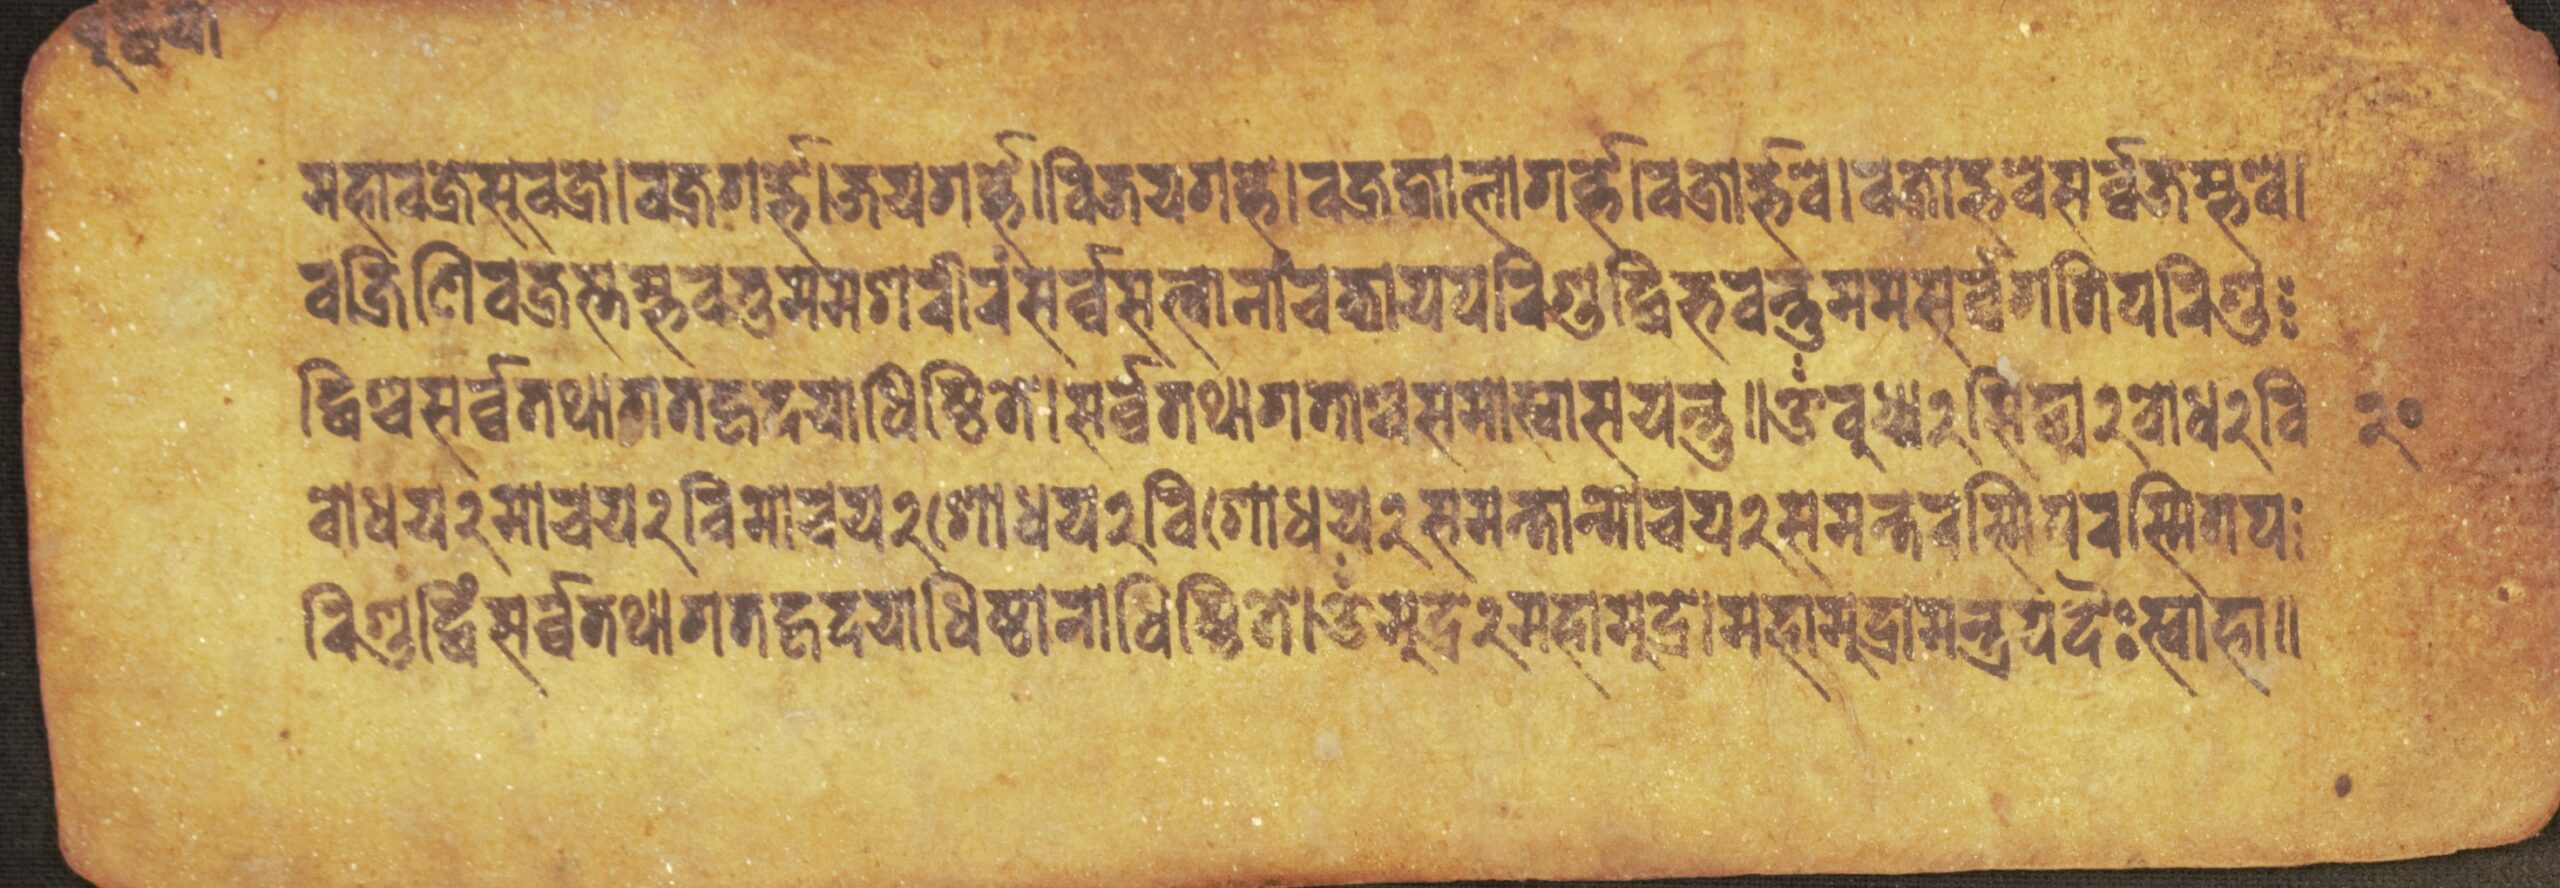 महावज्रेसुवज्रे।वज्रगर्ब्भे।जयगर्ब्भे।विजयगर्ब्भे।वज्रज्वालागर्ब्भे।वज्रोद्भवे।वज्रोद्भवसर्व्वजम्भवे।
वज्रिणिवज्रसम्भवतुममशरीरंसर्व्वसत्वानांचकायपरिशुद्धिभवन्तुममसर्व्वगतिपरिशुः
द्धिश्चसर्व्वतथागतहृदयाधिष्ठिते।सर्व्वतथागताश्चसमास्वासयन्तु॥ॐबुध्य२सिध्य२बोध२वि
बोधय२मोचय२विमोचय२शोधय२विशोधय२समन्तान्मोचय२समन्तरस्मि रस्मिगपः
रिशुद्धिंसर्व्वतथागतहृदयाधिष्ठानाधिष्ठिते।ॐमुद्रे२महामुद्रे।महामुद्रामन्त्रपदैःस्वाहा॥
२०